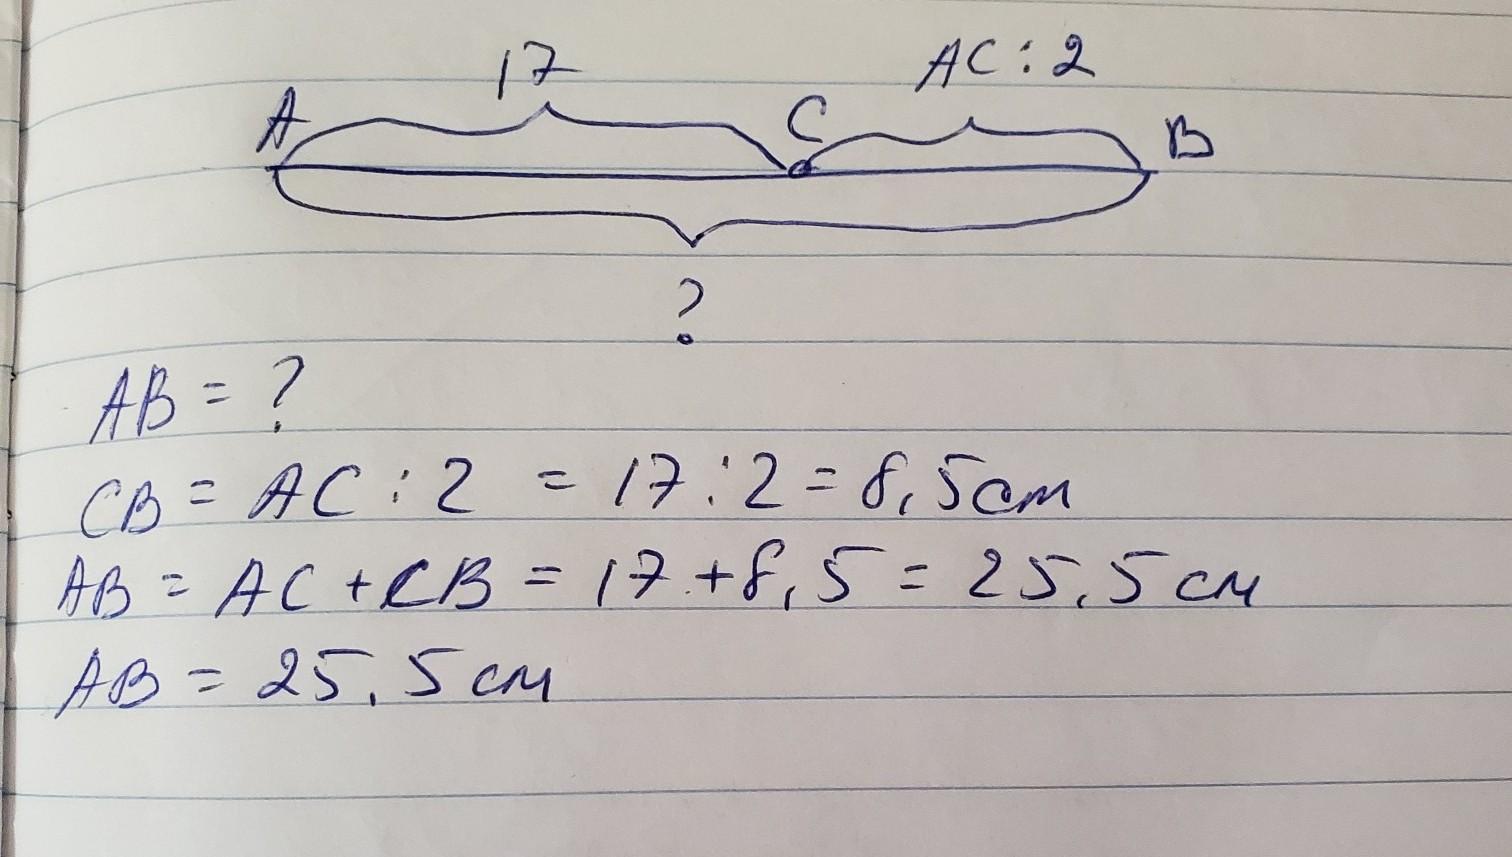 17
AC : 2
A
C
B
?
AB = ?
CB = AC : 2 = 17 : 2 = 8,5см
AB = AC + CB = 17 + 8,5 = 25,5 см
AB = 25,5 см